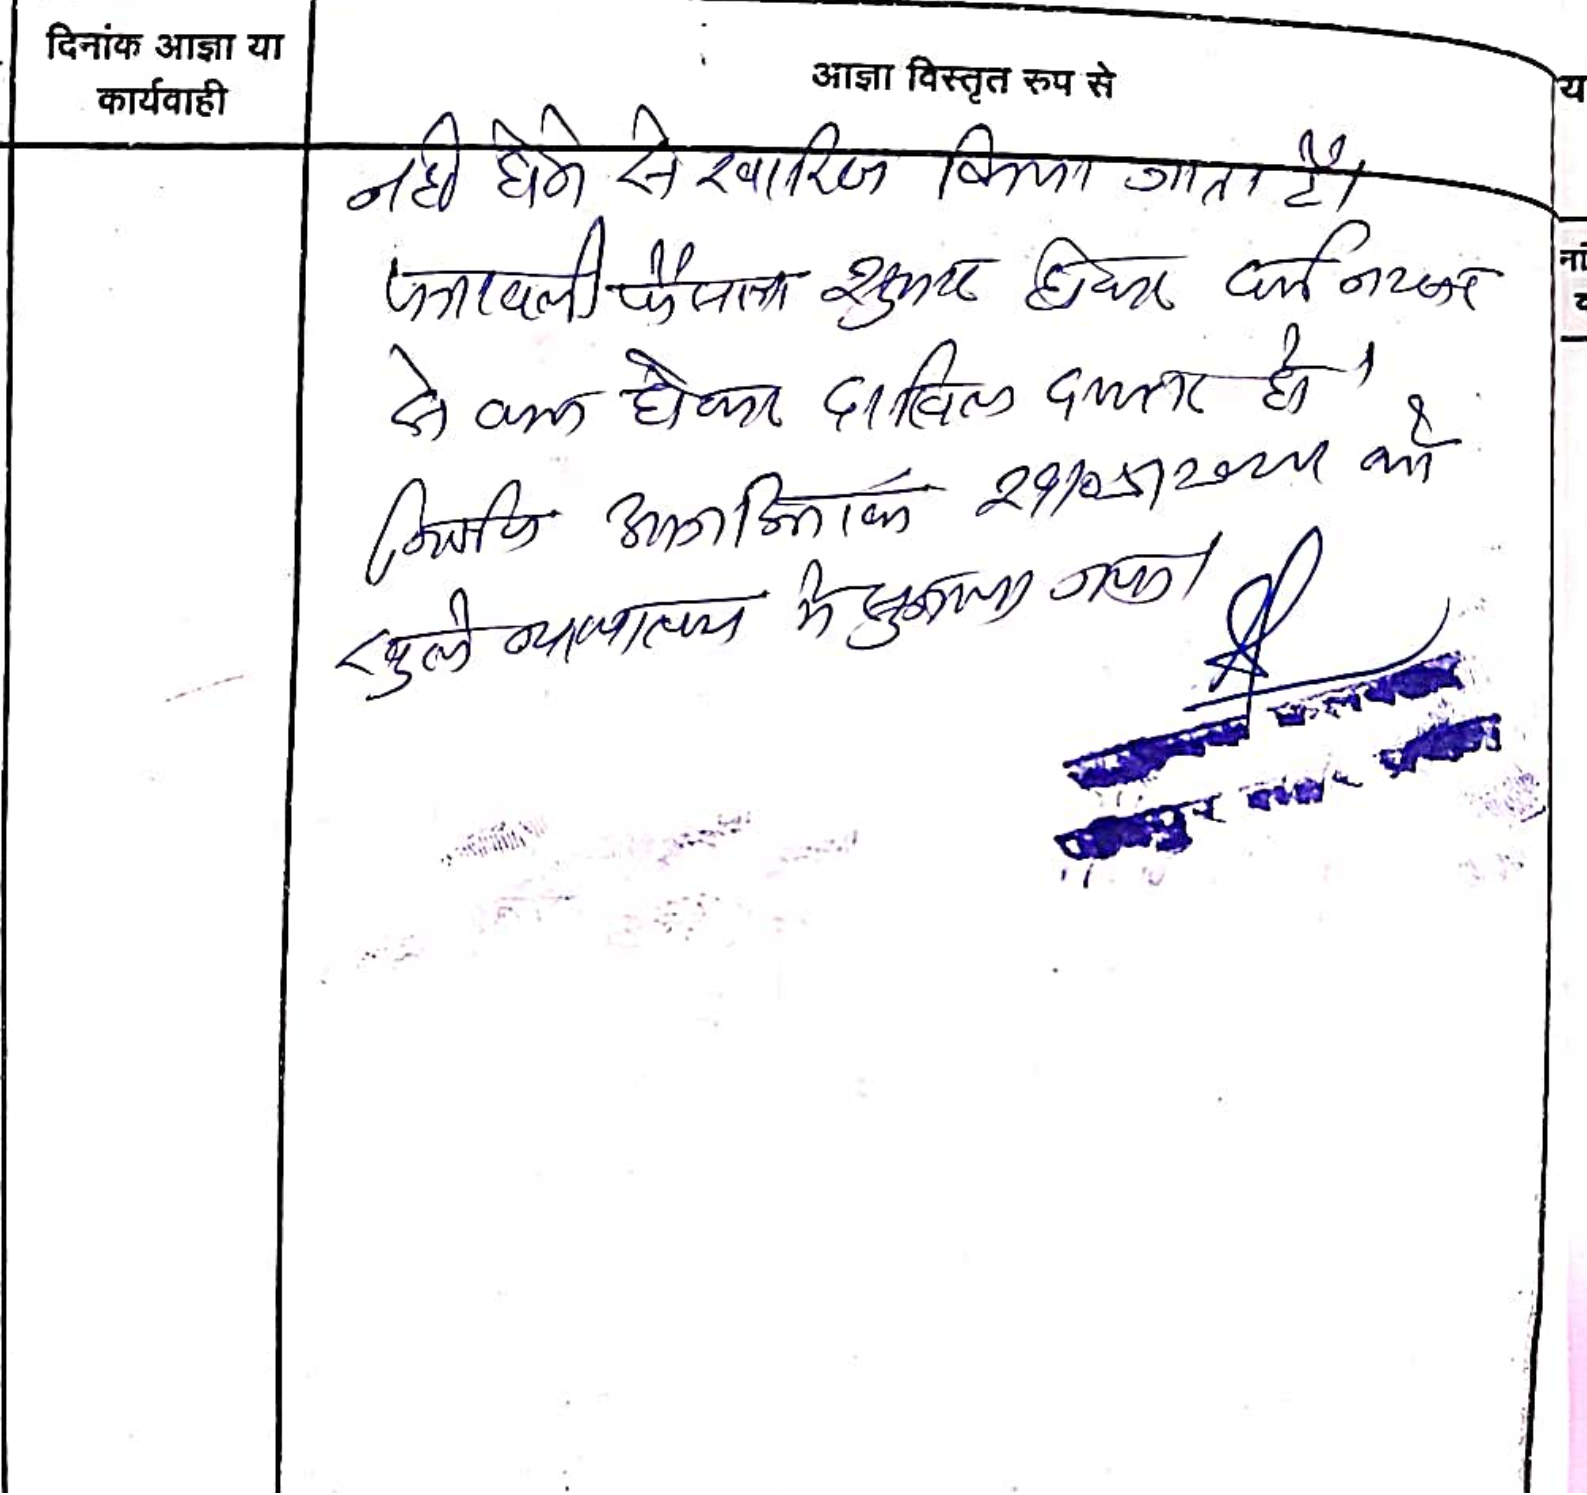 दिनांक आज्ञा या
कार्यवाही
आज्ञा विस्तृत रुप से
नही होने से खारिज किया जाता है।
पत्रावली फैसला शुमार होकर दर्ज नम्बर
से कम होकर दाखिल दफ्तर हो।
निर्णय आज दिनांक को
खुले न्यायालय मे सुनाया गया।